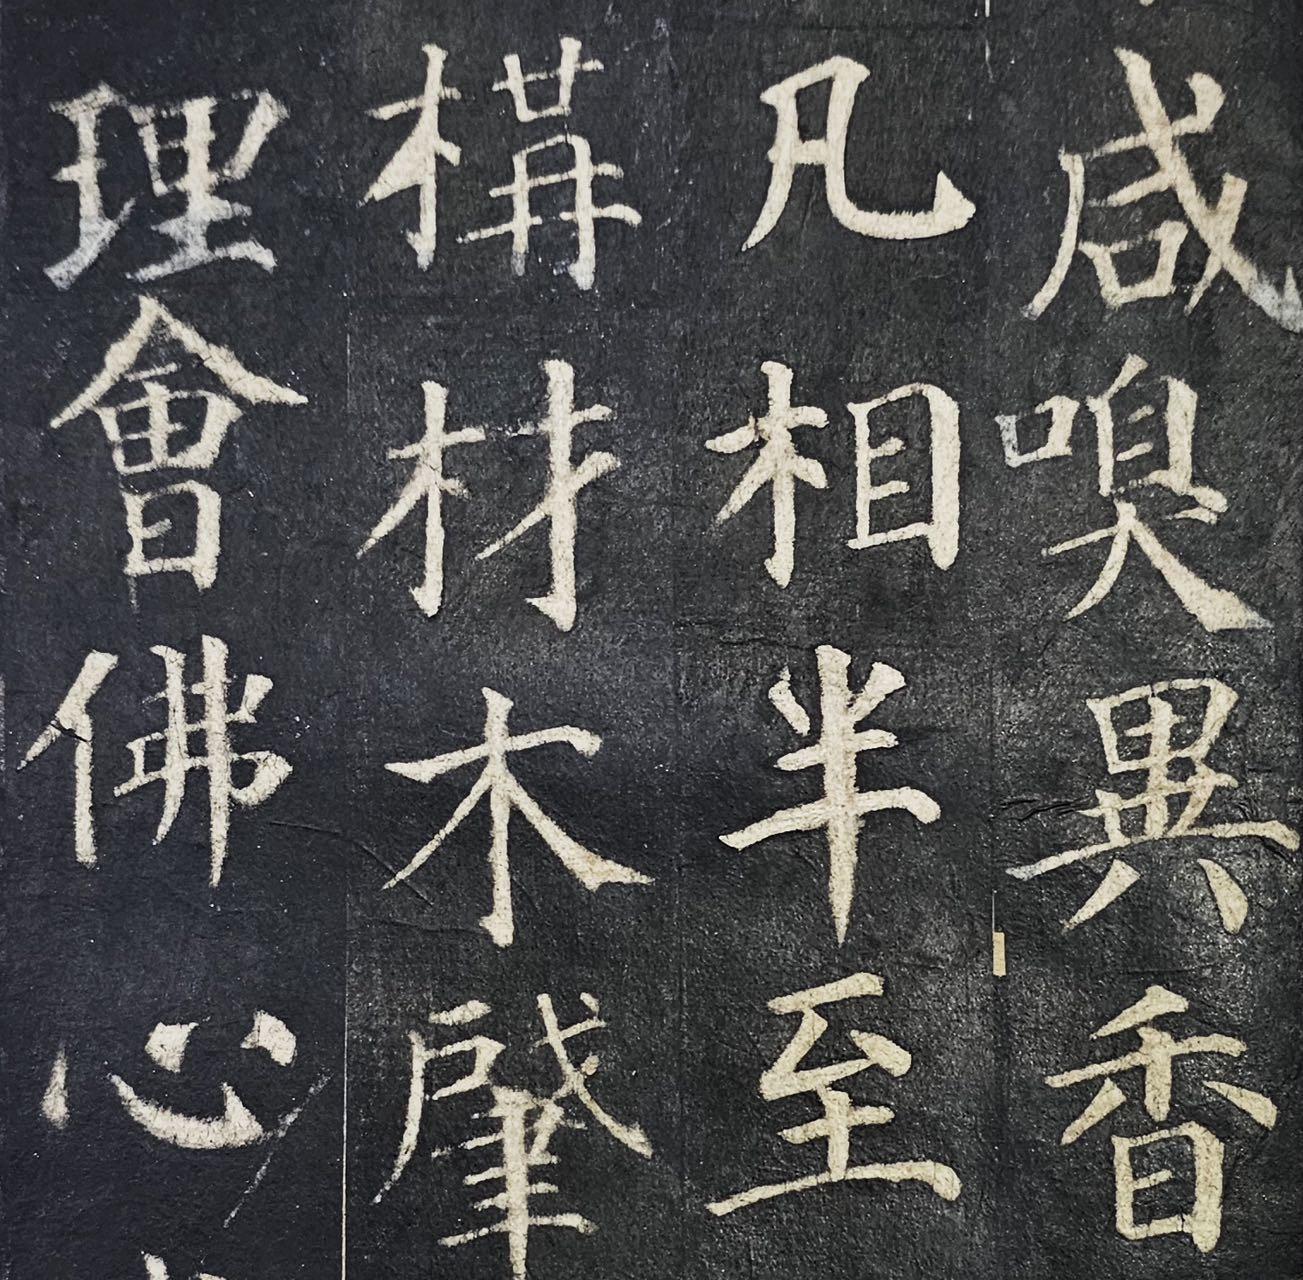 咸嗅異香
凡相半至
構材木肇
理會佛心